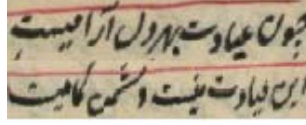 چون عیادت بهر دل آرامیست
این عیادت نیست دشمن کامیست